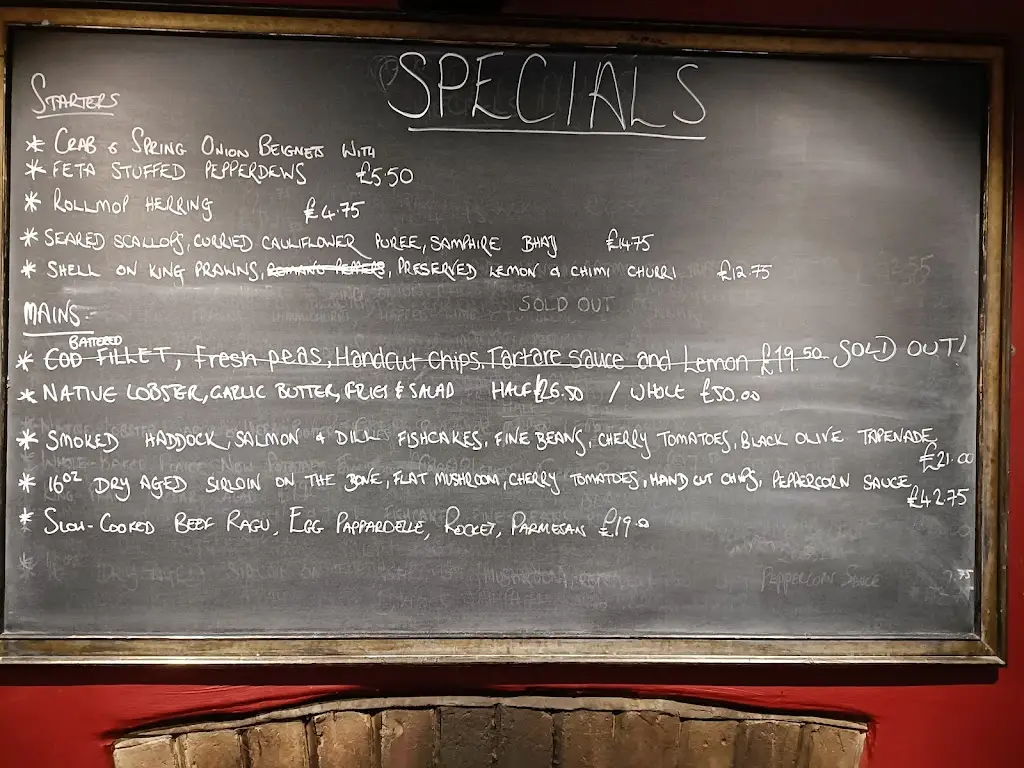 SPECIALS
STARTERS
* CRAB & SPRING ONION BEIGNETS WITH
* FETA STUFFED PEPPERDEWS £5.50
* ROLLMOP HERRING £4.75
* SEARED SCALLOPS, CURRIED CAULIFLOWER PUREE, SAMPHIRE BHAJ £14.75
* SHELL ON KING PRAWNS, ROMANO PEPPERS, PRESERVED LEMON & CHIMI CHURRI £12.75
SOLD OUT
MAINS:-
BATTERED
* COD FILLET, Fresh peas, Handcut Chips. Tartare Sauce and Lemon £19.50 SOLD OUT!
* NATIVE LOBSTER, GARLIC BUTTER, FRIES & SALAD HALF £26.50 / WHOLE £50.00
* SMOKED HADDOCK, SALMON & DILL FISHCAKES, FINE BEANS, CHERRY TOMATOES, BLACK OLIVE TAPENADE
£21.00
* 16oz DRY AGED SIRLOIN ON THE BONE, FLAT MUSHROOM, CHERRY TOMATOES, HAND CUT CHIPS, PEPPERCORN SAUCE
£42.75
* SLOW-COOKED BEEF RAGU, EGG PAPPARDELLE, ROCKET, PARMESAN £19.0
PEPPERCORN SAUCE